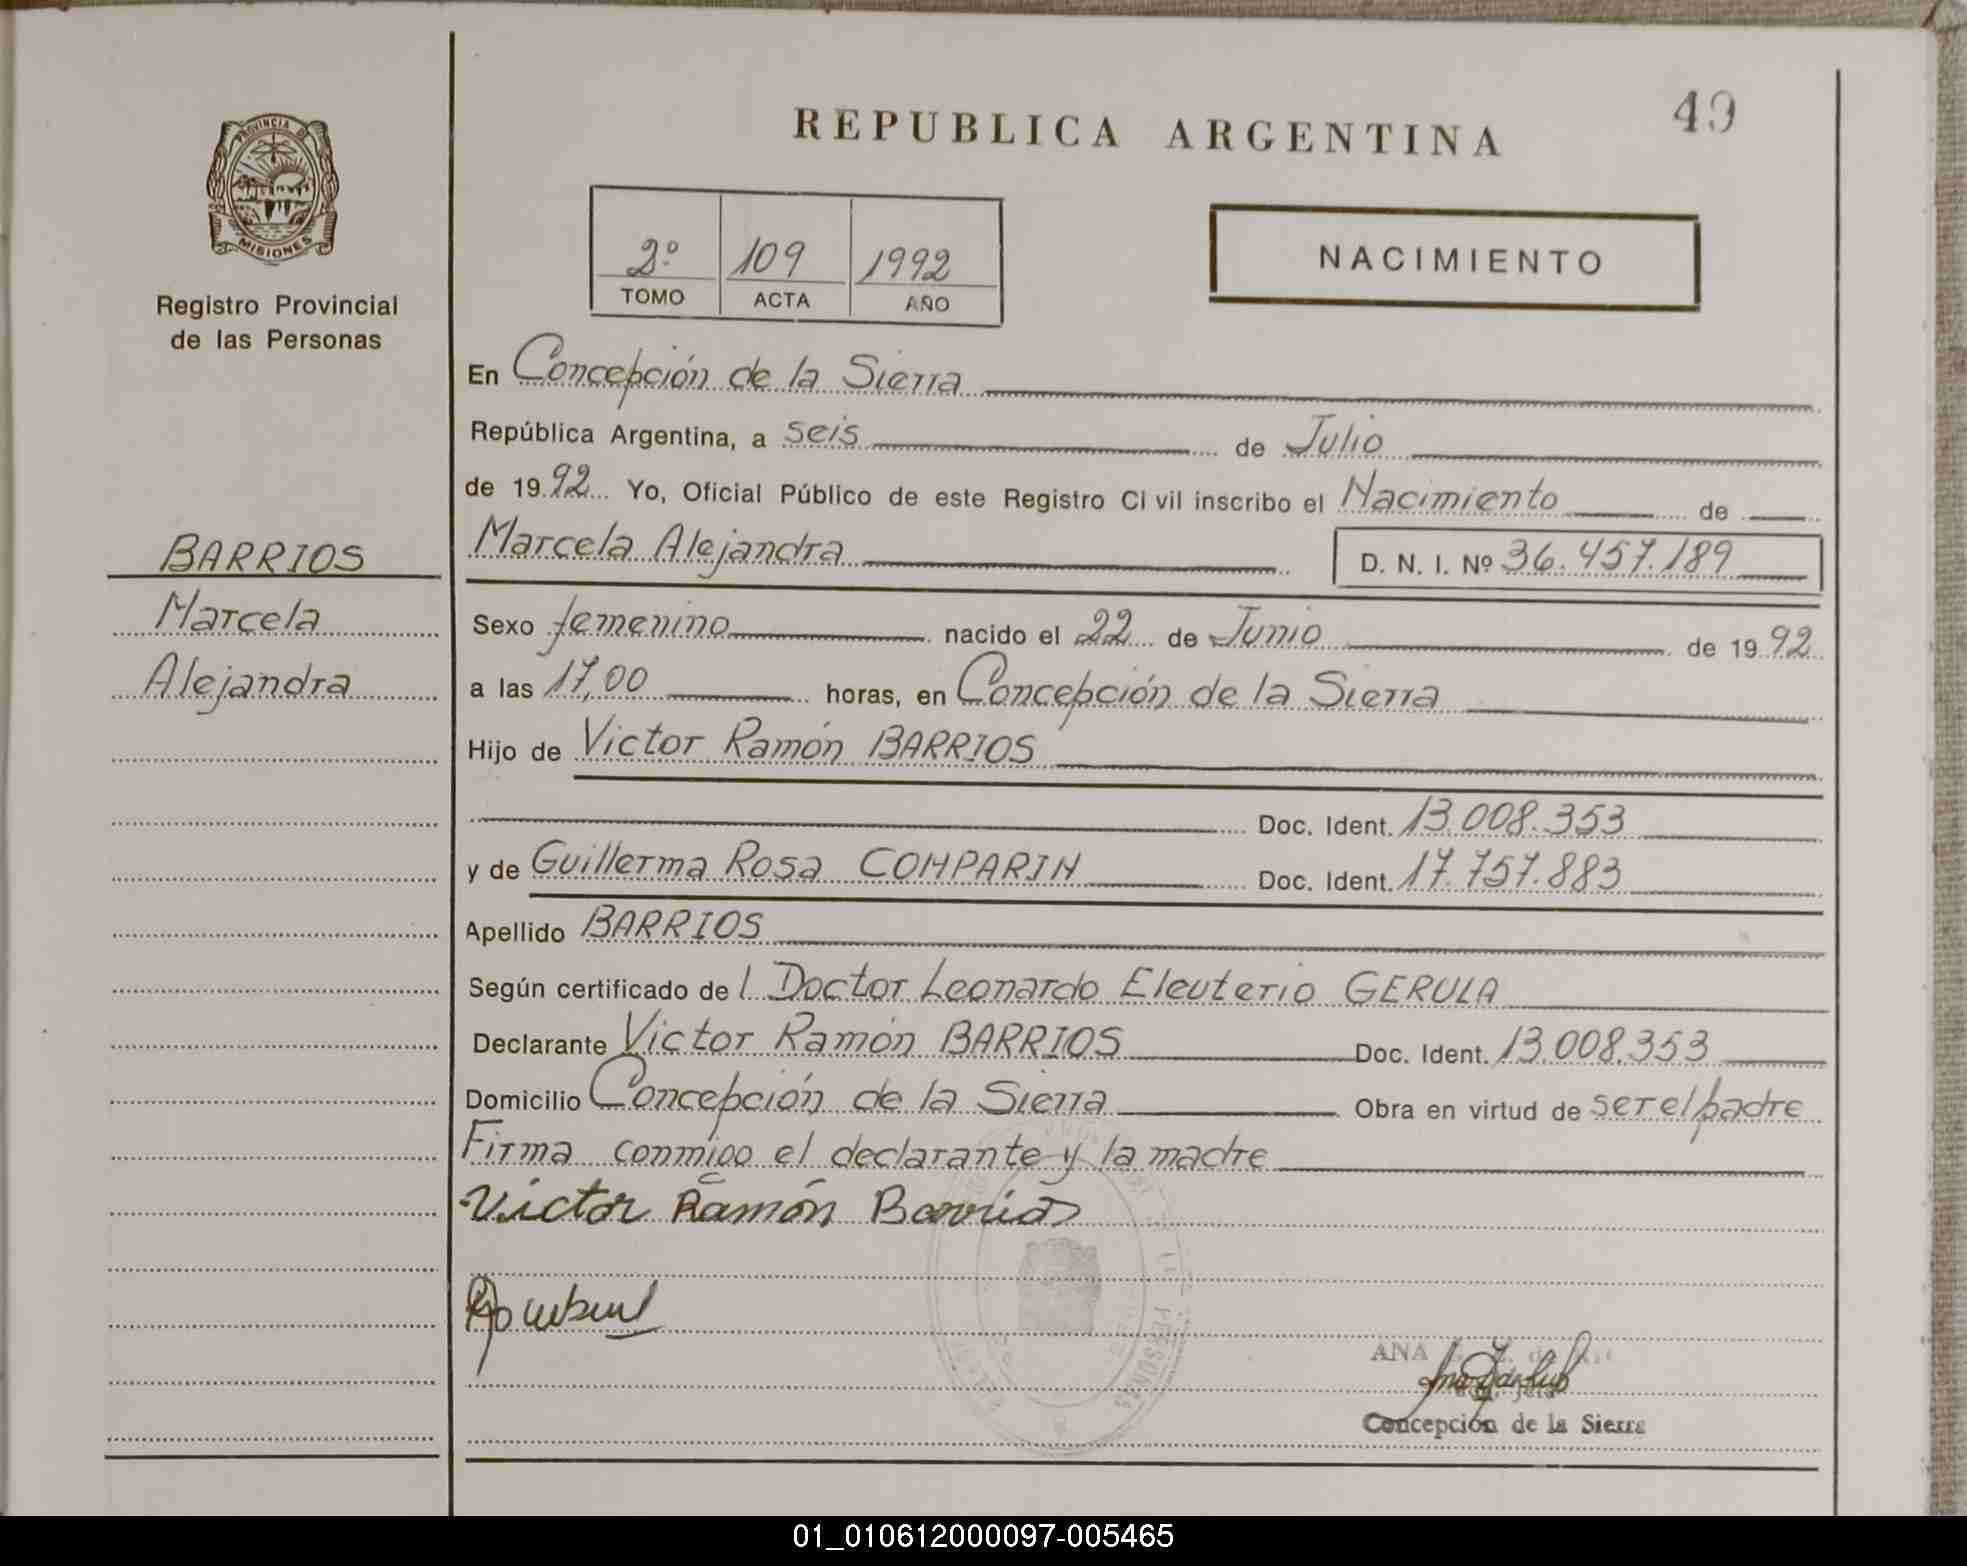 PROVINCIA DE
MISIONES
Registro Provincial
de las Personas
BARRIOS
Marcela
Alejandra
REPUBLICA ARGENTINA
49
2º 109 1992
TOMO ACTA AÑO
NACIMIENTO
En Concepción de la Sierra
República Argentina, a seis de Julio
de 1992 Yo, Oficial Público de este Registro Ci vil inscribo el Nacimiento de
Marcela Alejandra D. N. I. Nº 36.457.189
Sexo femenino nacido el 22 de Junio de 1992
a las 17,00 horas, en Concepción de la Sierra
Hijo de Victor Ramón BARRIOS
Doc. Ident. 13.008.353
y de Guillerma Rosa COMPARIN Doc. Ident. 17.757.883
Apellido BARRIOS
Según certificado de l Doctor Leonardo Eleuterio GERULA
Declarante Victor Ramón BARRIOS Doc. Ident. 13.008.353
Domicilio Concepción de la Sierra Obra en virtud de ser el padre
Firma conmigo el declarante y la madre
Victor Ramón Barrios
ANA
Concepción de la Sierra
01_010612000097-005465